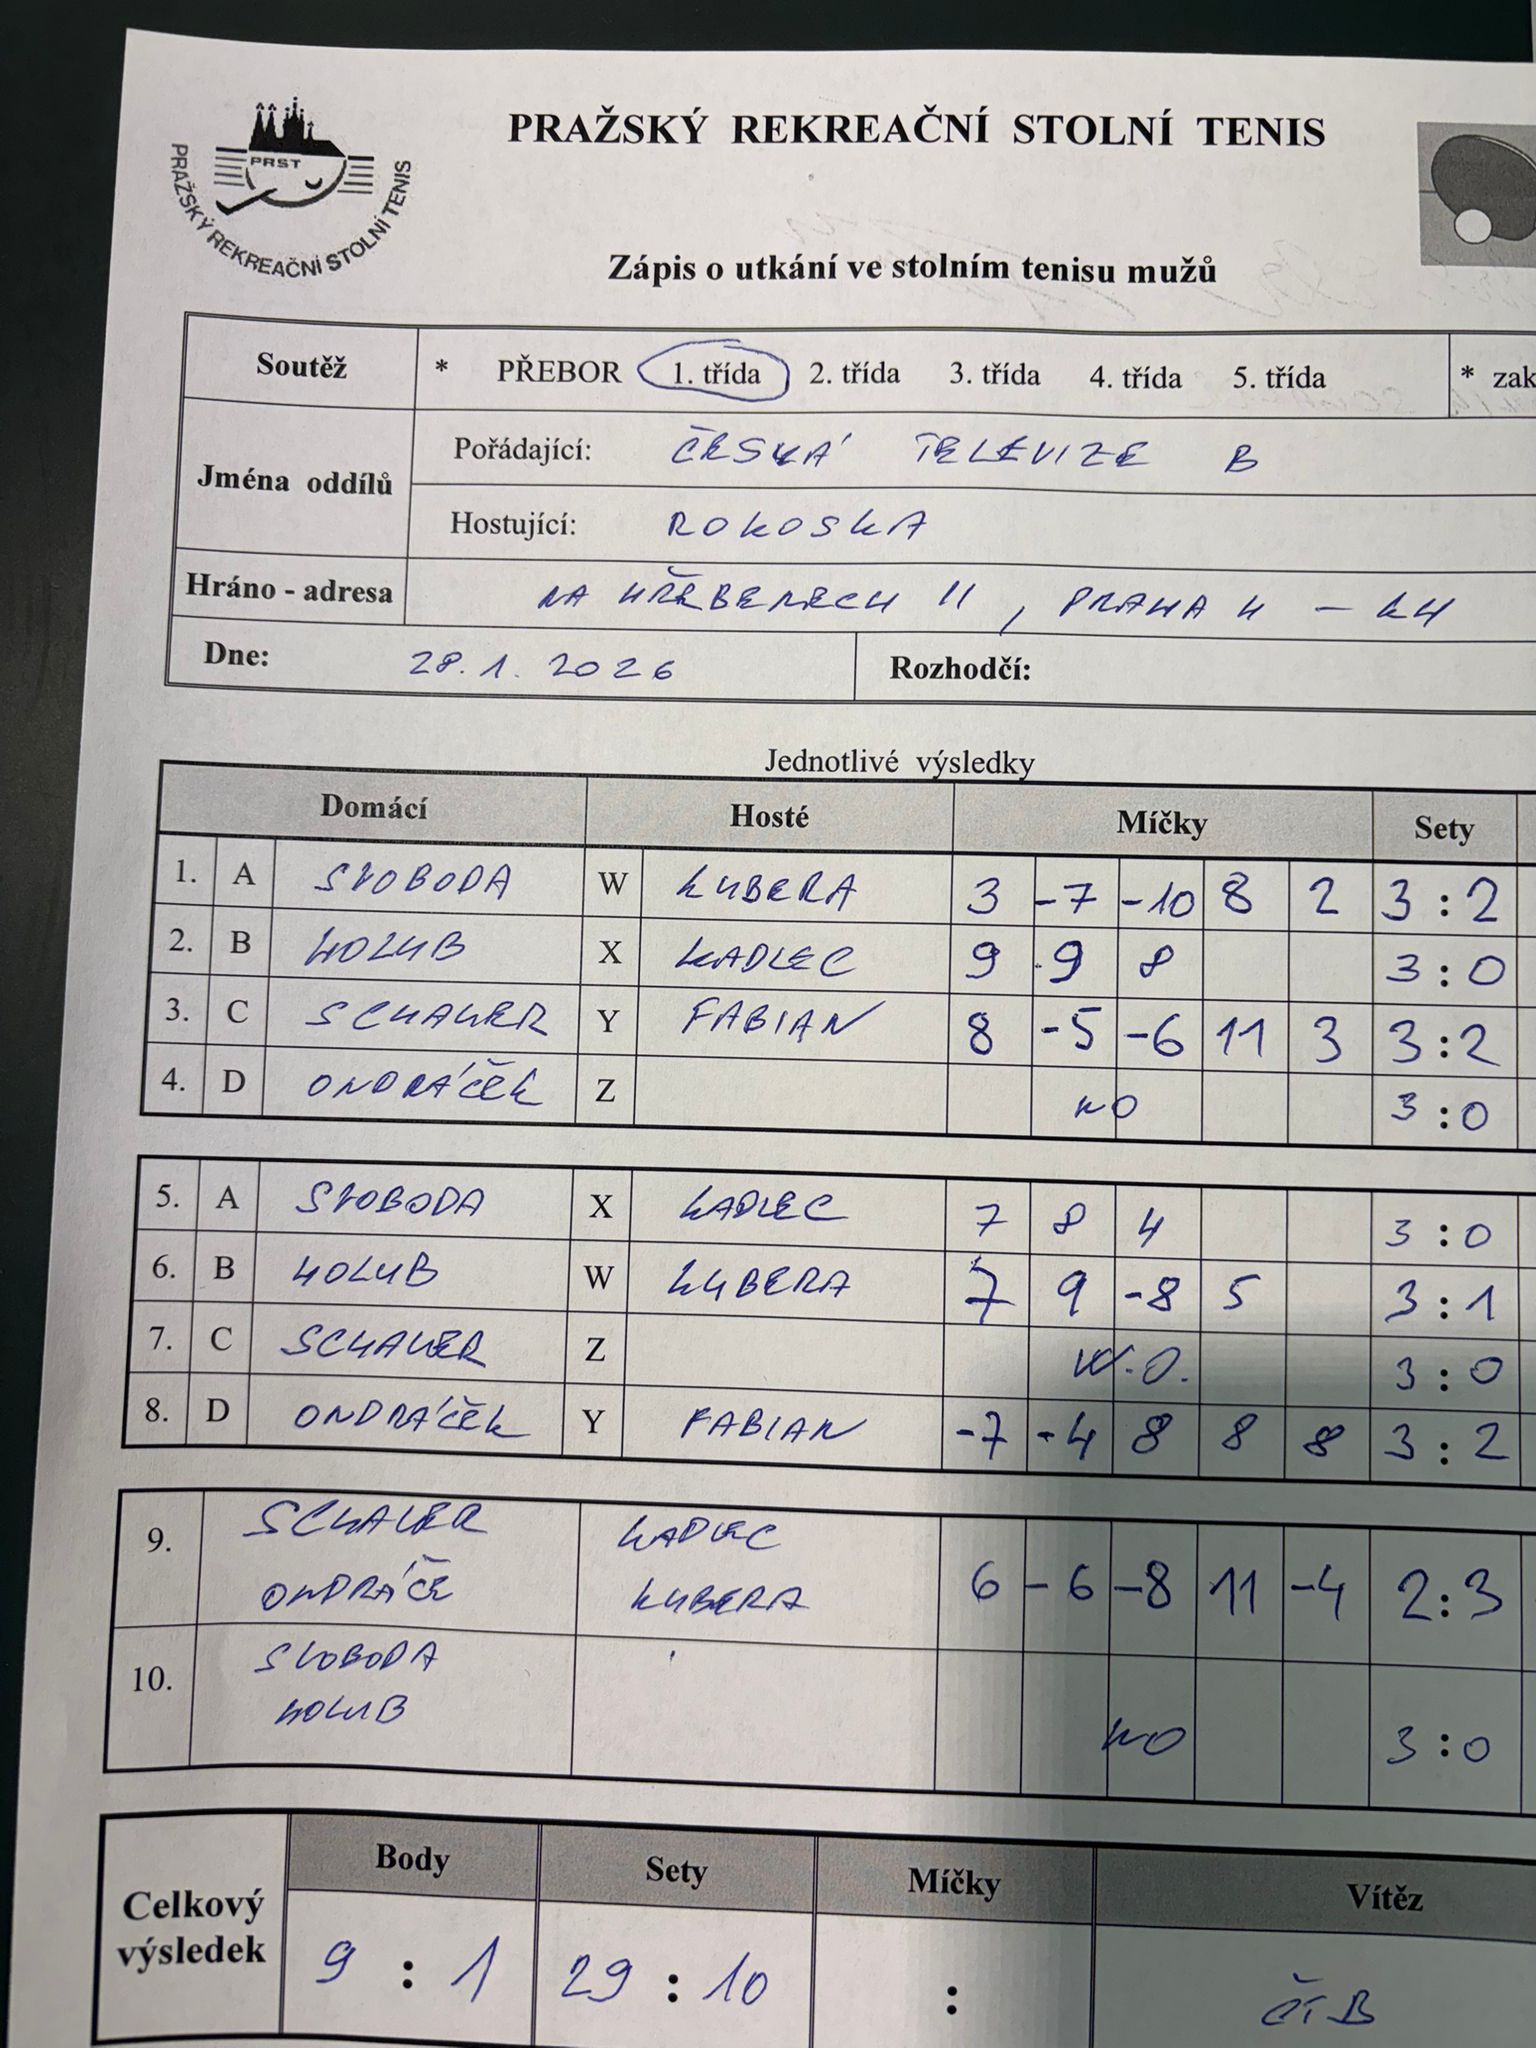 PRAŽSKÝ REKREAČNÍ STOLNÍ TENIS
PRST
PRAŽSKÝ REKREAČNÍ STOLNÍ TENIS
Zápis o utkání ve stolním tenisu mužů
Soutěž * PŘEBOR 1. třída 2. třída 3. třída 4. třída 5. třída * zak
Jména oddílů
Pořádající: ČESKÁ TELEVIZE B
Hostující: ROKOSKA
Hráno - adresa NA HŘEBENECH II, PRAHA 4 - KH
Dne: 28.1.2026 Rozhodčí:
Jednotlivé výsledky
Domácí Hosté Míčky Sety
1. A SVOBODA W KUBERA 3 -7 -10 8 2 3 : 2
2. B HOLUB X KADLEC 9 9 8 3 : 0
3. C SCHAUER Y FABIAN 8 -5 -6 11 3 3 : 2
4. D ONDRÁČEK Z WO 3 : 0
5. A SVOBODA X KADLEC 7 8 4 3 : 0
6. B HOLUB W KUBERA 7 9 -8 5 3 : 1
7. C SCHAUER Z W.O. 3 : 0
8. D ONDRÁČEK Y FABIAN -7 -4 8 8 8 3 : 2
9. SCHAUER KADLEC
ONDRÁČE KUBERA 6 -6 -8 11 -4 2 : 3
10. SVOBODA
HOLUB WO 3 : 0
Celkový výsledek
Body Sety Míčky Vítěz
9 : 1 29 : 10 : ČTB